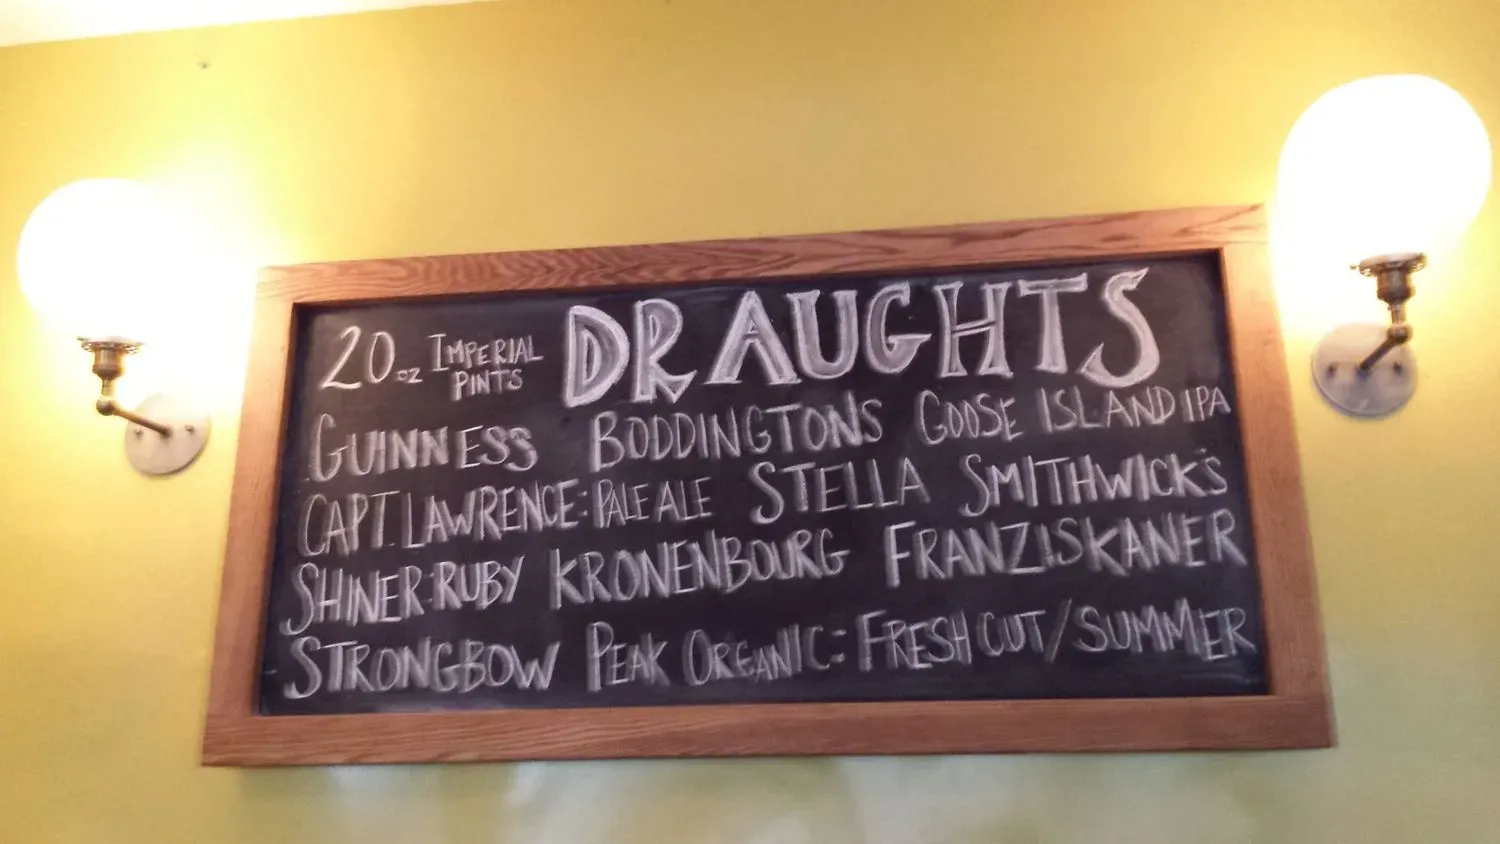 20 oz IMPERIAL PINTS DRAUGHTS
GUINNESS BODDINGTONS GOOSE ISLAND IPA
CAPT. LAWRENCE: PALE ALE STELLA SMITHWICK'S
SHINER: RUBY KRONENBOURG FRANZISKANER
STRONGBOW PEAK ORGANIC: FRESH CUT/SUMMER